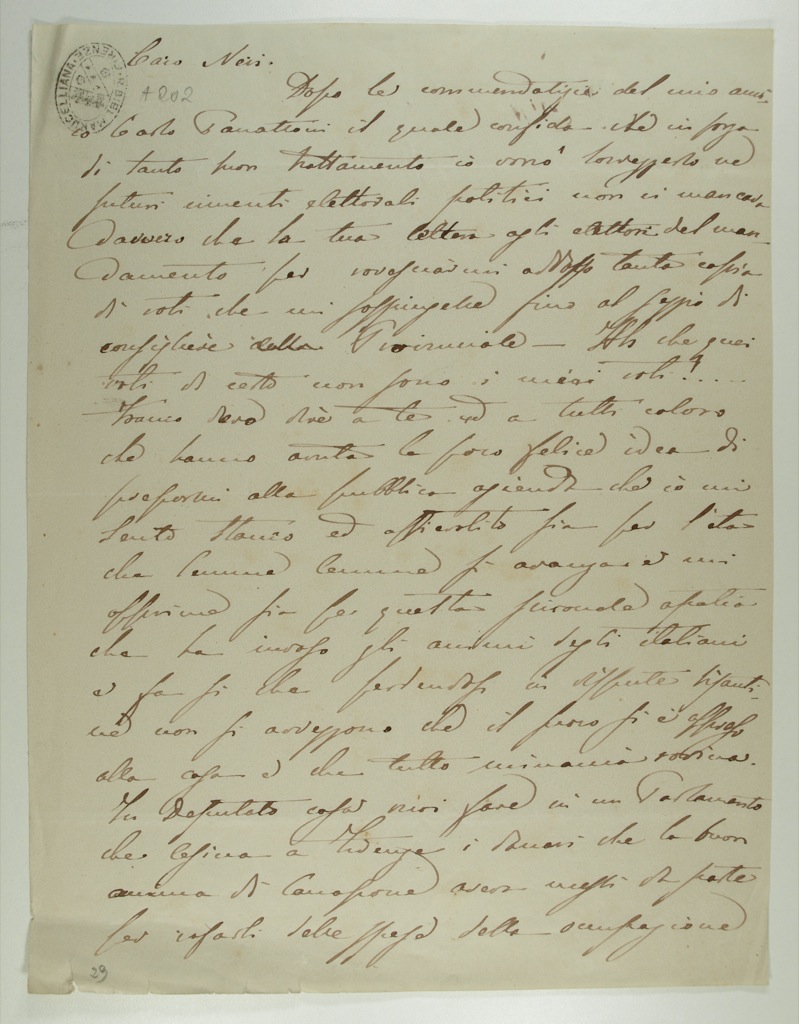 R. BIB. MARUCELLIANA · FIRENZE
Caro Neri.
+ 202
Dopo le commendatizie del mio ami-
co Carlo Panattoni il quale confida che in forza
di tanto buon trattamento io vorrò sorreggerlo ne'
futuri cimenti elettorali politici non ci mancava
davvero che la tua lettera agli elettori del man-
damento per rovesciarmi addosso tanta copia
di voti che mi sospingesse fino al seggio di
consigliere della Provinciale — Ah che quei
voti di certo non sono i miei voti!....
Franco devo dire a te ed a tutti coloro
che hanno avuta la poco felice idea di
prepormi alla pubblica azienda che io mi
sento stanco ed affievolito sia per l'età
che lemme lemme si avanza e mi
opprime sia per questa profonda apatia
che ha invaso gli animi degli italiani
e fa sì che perdendosi in dispute bizanti-
ne non si avveggono che il fuoco si è appreso
alla casa e che tutto minaccia rovina.
Un Deputato cosa vuoi fare in un Parlamento
che lesina a Firenze i denari che la buon
anima di avea messi da parte
per rifarli delle spese della occupazione
29